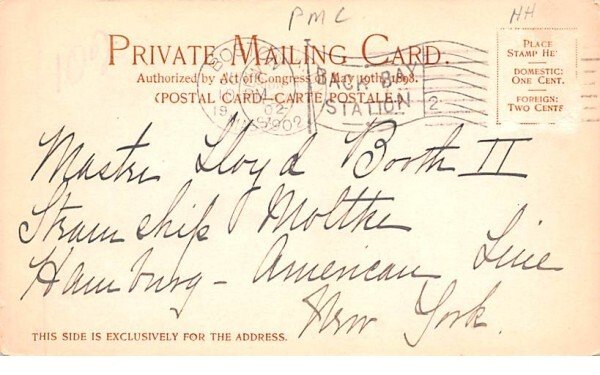 PMC
HH
PRIVATE MAILING CARD.
Authorized by Act of Congress of May 19th, 1898.
(POSTAL CARD—CARTE POSTALE.)
PLACE
STAMP HE
DOMESTIC:
ONE CENT.
FOREIGN:
TWO CENTS
BOS
1902
MASS
BACK BAY
STATION
2
Master Lloyd Booth II
Steamship Moltke
Hamburg - American Line
New York.
THIS SIDE IS EXCLUSIVELY FOR THE ADDRESS.